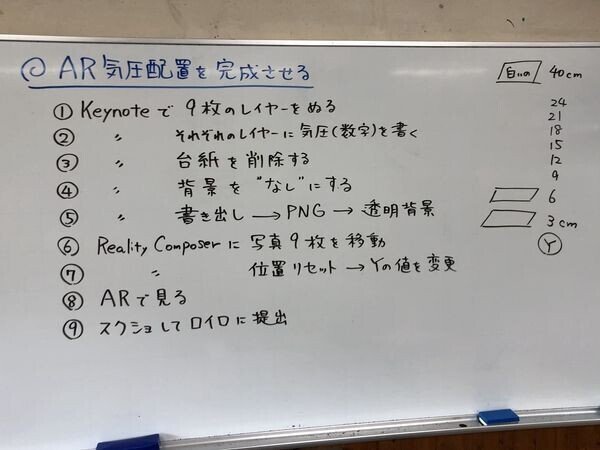 ◎AR気圧配置を完成させる
① Keynoteで 9枚のレイヤーをぬる
② 〃 それぞれのレイヤーに気圧(数字)を書く
③ 〃 台紙を削除する
④ 〃 背景を"なし"にする
⑤ 〃 書き出し→PNG→透明背景
⑥ Reality Composerに写真9枚を移動
⑦ 〃 位置リセット→Yの値を変更
⑧ ARで見る
⑨ スクショしてロイロに提出
白いの 40cm
24
21
18
15
12
9
6
3cm
Y